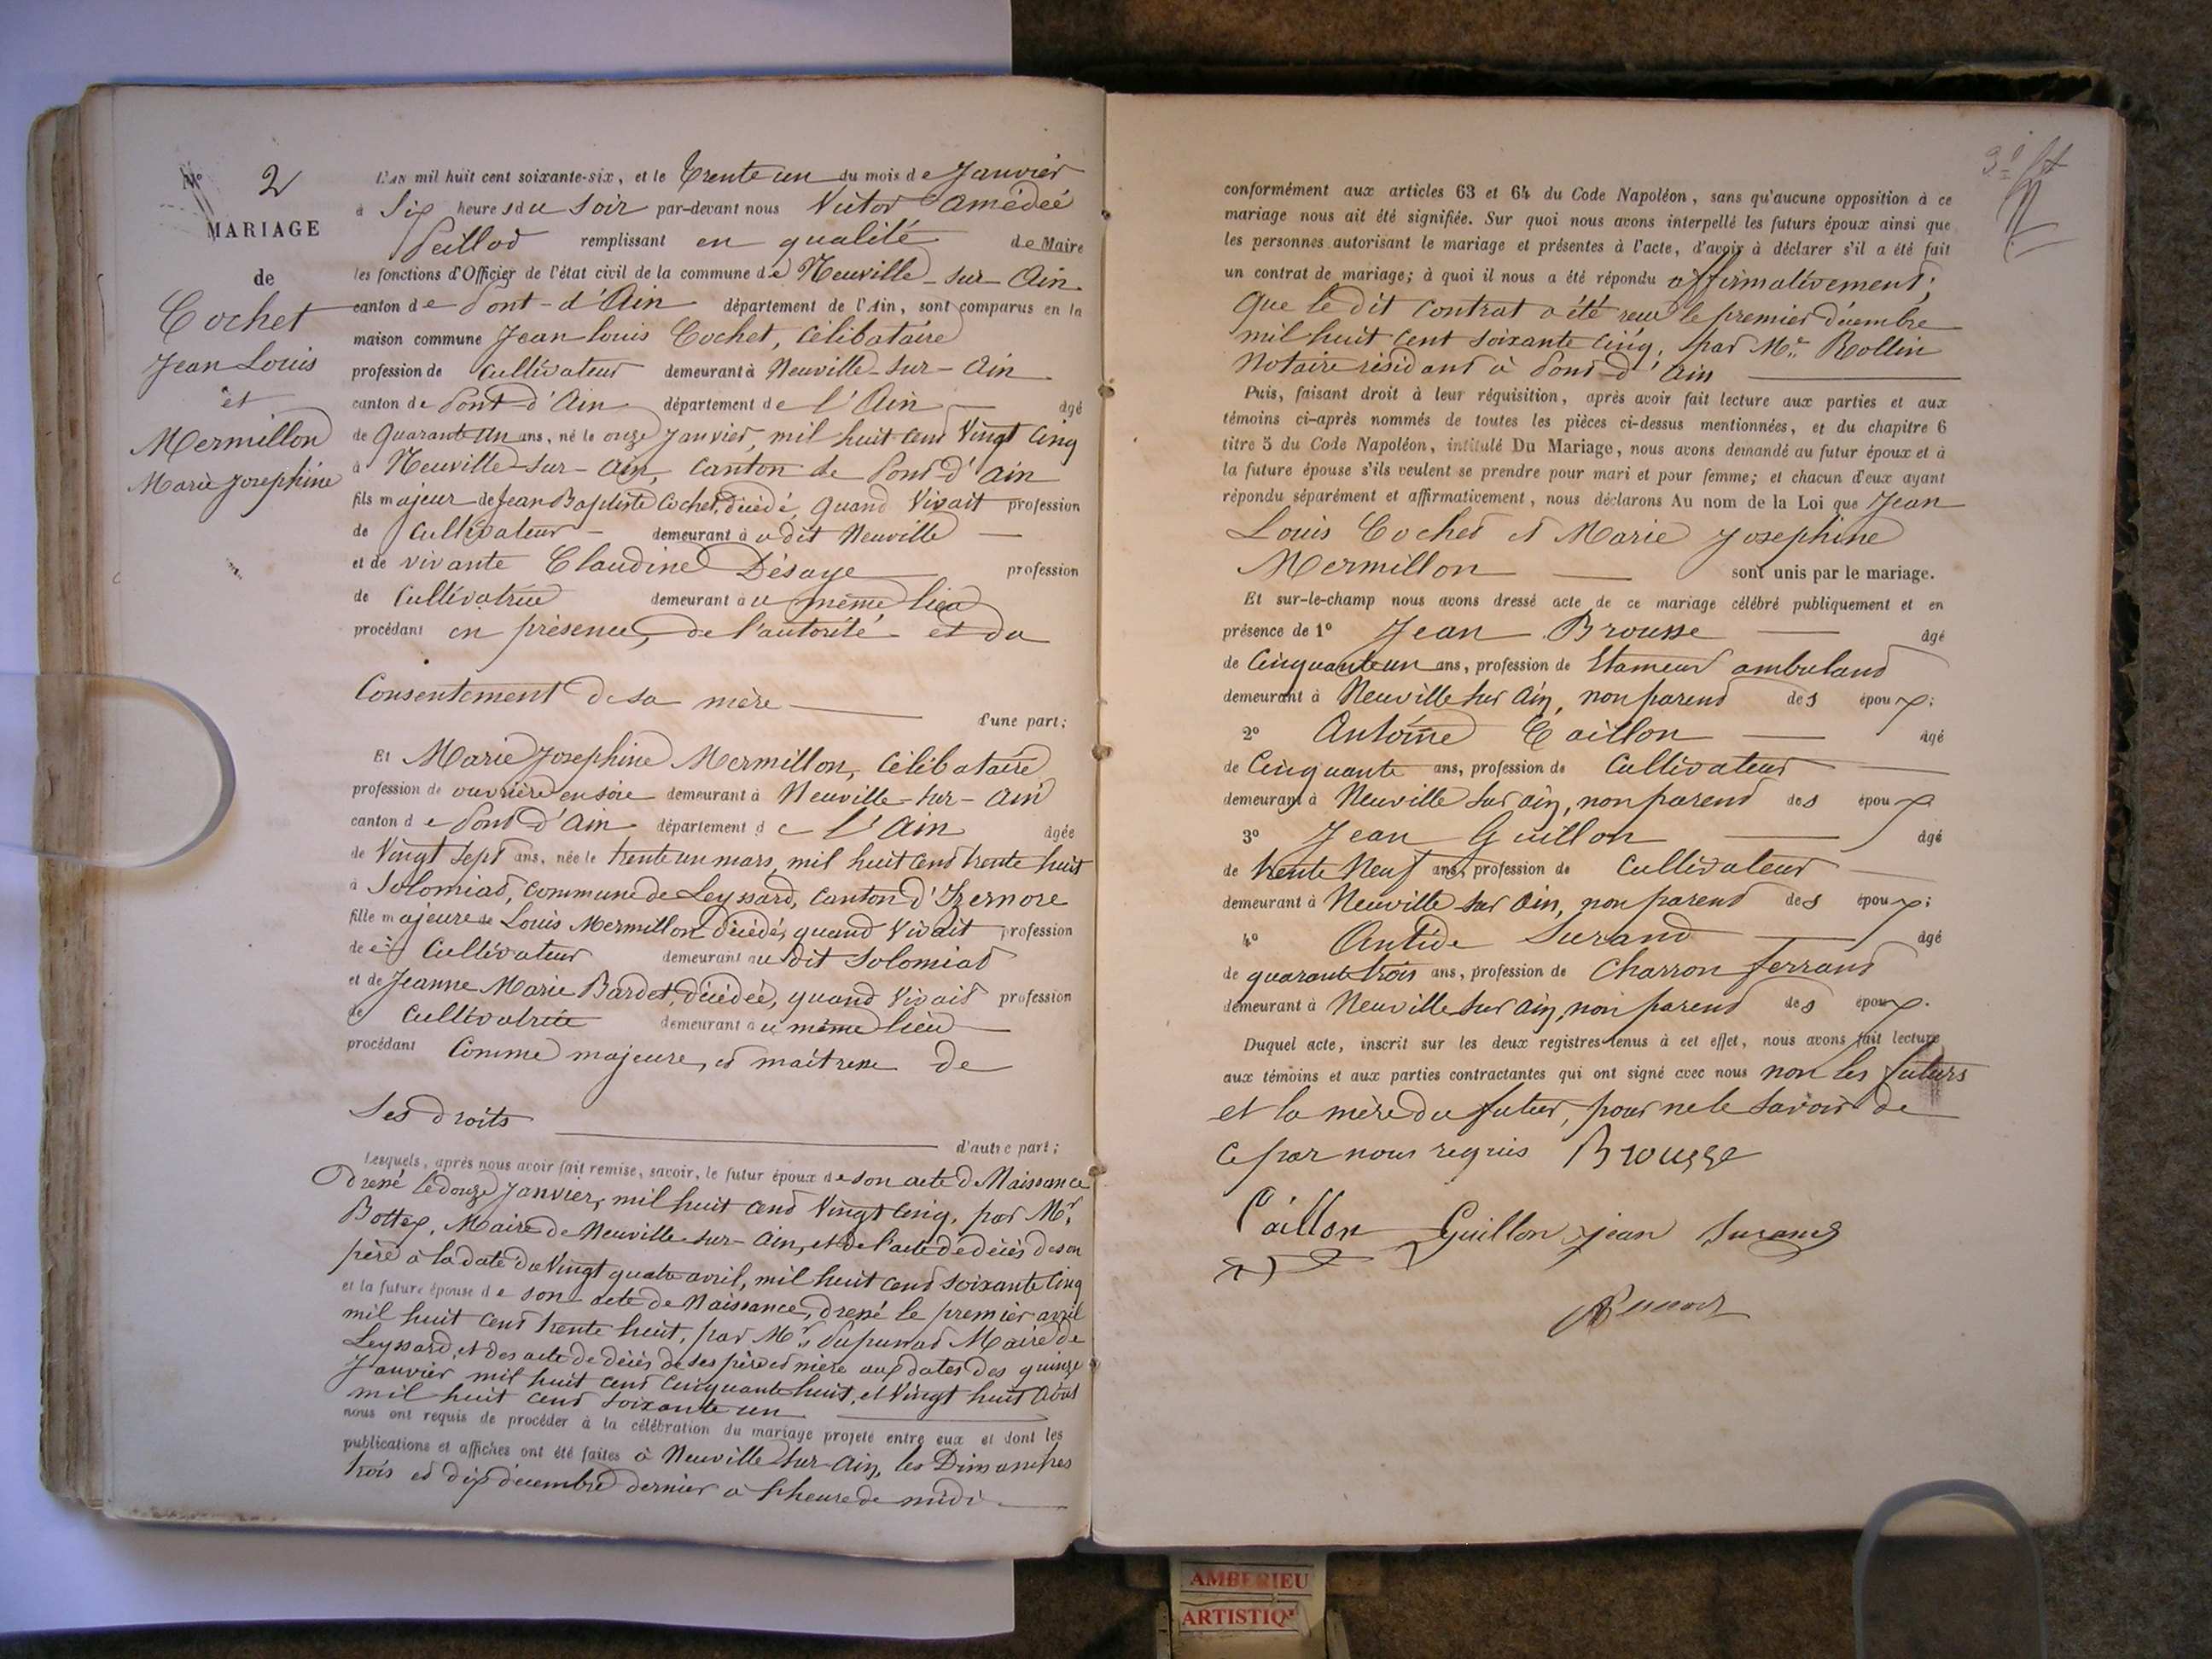 No 2
MARIAGE
de
Cochet
Jean Louis
et
Mermillon
Marie Josephine
L'AN mil huit cent soixante-six, et le trente un du mois de Janvier
à Six heures du Soir par-devant nous Victor Amédéé
remplissant en qualité de Maire
les fonctions d'Officier de l'état civil de la commune de Neuville-sur-Ain
canton de Pont-d'Ain département de l'Ain, sont comparus en la
maison commune Jean Louis Cochet, Célibataire
profession de Cultivateur demeurant à Neuville-sur-Ain
canton de Pont-d'Ain département de l'Ain âgé
de Quarante un ans, né le onze Janvier, mil huit cent Vingt Cinq
à Neuville-sur-Ain, Canton de Pont-d'Ain
fils majeur de Jean Baptiste Cochet, décédé, quand Vivait profession
de Cultivateur demeurant à udit Neuville
et de vivante Claudine Désaye profession
de Cultivatrice demeurant au même lieu
procédant en présence, de l'autorité et du
Consentement de sa mère
d'une part;
Et Marie Josephine Mermillon, Célibataire
profession de ouvrière en soie demeurant à Neuville-sur-Ain
canton de Pont-d'Ain département de l'Ain âgée
de Vingt Sept ans, née le trente un mars, mil huit cent trente huit
à Solomiat, Commune de Leyssard, Canton d'Izernore
fille majeure de Louis Mermillon décédé, quand Vivait profession
de Cultivateur demeurant audit Solomiat
et de Jeanne Marie Bardet, décédéé, quand Vivait profession
de Cultivatrice demeurant au même lieu
procédant Comme majeure, et maitresse de
Ses droits
d'autre part;
Lesquels, après nous avoir fait remise, savoir, le futur époux de son acte de Naissance
dressé le douze Janvier, mil huit cent Vingt Cinq, par Mr
Bottex, Maire de Neuville-sur-Ain, et de l'acte de décès de son
père à la date du Vingt quatre avril, mil huit cent soixante Cinq
et la future épouse de son acte de Naissance, dressé le premier avril
mil huit cent trente huit, par Mr Maire de
Leyssard, et des acte de décès de ses père et mère aux dates des quinze
Janvier mil huit cent cinquante huit, et Vingt huit Aout
mil huit cent soixante un
nous ont requis de procéder à la célébration du mariage projeté entre eux et dont les
publications et affiches ont été faites à Neuville sur Ain, les Dimanches
trois et dix décembre dernier à heure de midi
conformément aux articles 63 et 64 du Code Napoléon, sans qu'aucune opposition à ce
mariage nous ait été signifiée. Sur quoi nous avons interpellé les futurs époux ainsi que
les personnes autorisant le mariage et présentes à l'acte, d'avoir à déclarer s'il a été fait
un contrat de mariage; à quoi il nous a été répondu affirmativement;
Que le dit Contrat a été recu le premier décembre
mil huit cent soixante Cinq, par Me Rollin
Notaire résidant à Pont-d'Ain
Puis, faisant droit à leur réquisition, après avoir fait lecture aux parties et aux
témoins ci-après nommés de toutes les pièces ci-dessus mentionnées, et du chapitre 6
titre 5 du Code Napoléon, intitulé Du Mariage, nous avons demandé au futur époux et à
la future épouse s'ils veulent se prendre pour mari et pour femme; et chacun d'eux ayant
répondu séparément et affirmativement, nous déclarons Au nom de la Loi que Jean
Louis Cochet et Marie Josephine
Mermillon sont unis par le mariage.
Et sur-le-champ nous avons dressé acte de ce mariage célébré publiquement et en
présence de 1° Jean Brousse âgé
de Cinquante un ans, profession de Etameur ambulant
demeurant à Neuville sur Ain, non parent des époux;
2° Antoine Caillon âgé
de Cinquante ans, profession de Cultivateur
demeurant à Neuville sur ain, non parent des époux
3° Jean Guillon âgé
de trente Neuf ans, profession de Cultivateur
demeurant à Neuville sur Ain, non parent des époux;
4° Antide Surand âgé
de quarante trois ans, profession de Charron ferrant
demeurant à Neuville sur Ain, non parent des époux.
Duquel acte, inscrit sur les deux registres tenus à cet effet, nous avons fait lecture
aux témoins et aux parties contractantes qui ont signé avec nous non les futurs
et la mère du futur, pour ne le savoir de
ce par nous requis Brousse
Caillon Guillon jean Surand
AMBERIEU
ARTISTIQ